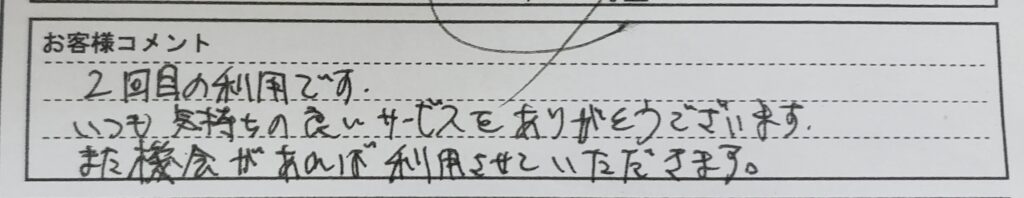 お客様コメント
2回目の利用です.
いつも気持ちの良いサービスをありがとうございます.
また機会があれば利用させていただきます。